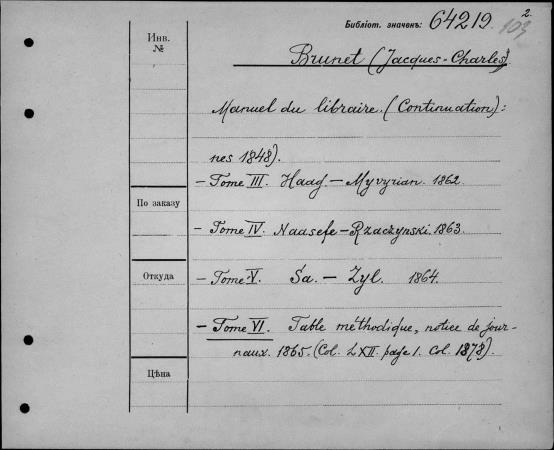 2.
Библіот. значенъ: 64219. 103
Инв.
№
Brunet (Jacques-Charles)
Manuel du libraire. (Continuation):
nes 1848).
– Tome III. Haag. – Myvyrian. 1862.
По заказу
– Tome IV. Naasefe – Rzaczynski. 1863.
Откуда
– Tome V. Sa. – Zyl. 1864.
– Tome VI. Table méthodique, notice de jour-
naux. 1865. (Col. LXII. page 1. Col. 1878).
Цѣна